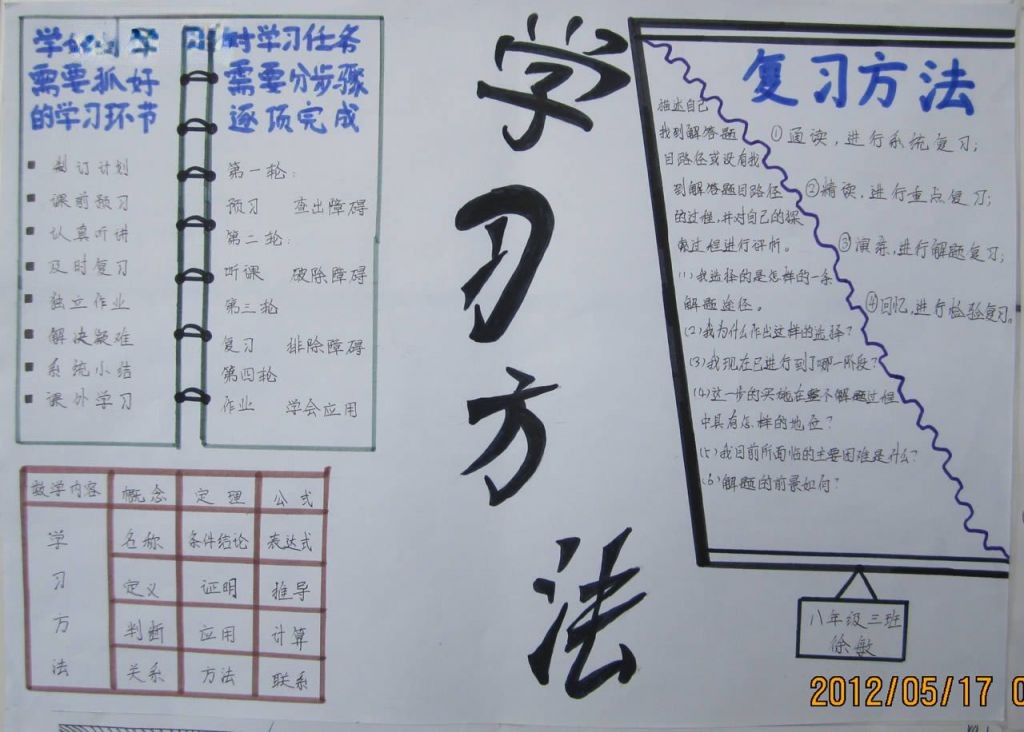 学习方法
学
需要抓好
的学习环节
制订计划
课前预习
认真听讲
及时复习
独立作业
解决疑难
系统小结
课外学习
对学习任务
需要分步骤
逐项完成
第一轮:
预习 查出障碍
第二轮:
听课 破除障碍
第三轮
复习 排除障碍
第四轮
作业 学会应用
教学内容 概念 定理 公式
学习方法
名称 条件结论 表达式
定义 证明 推导
判断 应用 计算
关系 方法 联系
复习方法
描述自己
找到解答题
目路径或没有找
到解答题目路径
的过程,并对自己的探
索过程进行评析。
(1)我选择的是怎样的一条
解题途径。
(2)我为什么作出这样的选择?
(3)我现在已进行到了哪一阶段?
(4)这一步的实施在整个解题过程
中具有怎样的地位?
(5)我目前所面临的主要困难是什么?
(6)解题的前景如何?
①通读,进行系统复习;
②精读,进行重点复习;
③演练,进行解题复习;
④回忆,进行检验复习。
八年级三班
徐敏
2012/05/17